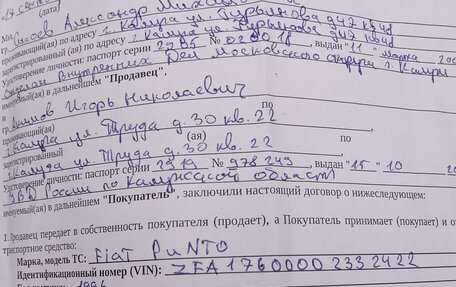 (дата)
Мы, Александр
гр.
проживающий(ая) по адресу г. Калуга ул.
зарегистрированный(ая) по адресу г. Калуга ул.
Удостоверение личности: паспорт серии № , выдан "11" марта
Отделом Внутренних Дел Московского округа г. Калуги
именуемый(ая) в дальнейшем "Продавец",
и
гр. Игорь Николаевич
проживающий(ая) по
г. Калуга ул. Труда д. 30 кв. 22
зарегистрированный (ая) по
г. Калуга ул. Труда д. 30 кв. 22
Удостоверение личности: паспорт серии 2919 № 978249, выдан "15" 10
России по Калужской област
именуемый(ая) в дальнейшем "Покупатель", заключили настоящий договор о нижеследующем:
1. Продавец передает в собственность покупателя (продает), а Покупатель принимает (покупает) и о
транспортное средство:
Марка, модель ТС: Fiat PUNTO
Идентификационный номер (VIN): ZFA17600002332422
1996